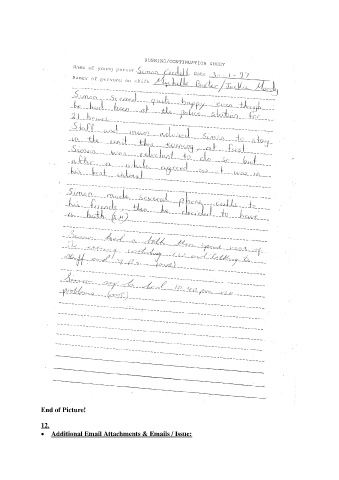 RUNNING/CONTINUATION SHEET
Name of young person Simon Date 30-1-97
Names of persons on shift Michelle /
Simon seemed quite happy even though
he had been at the police station for
21 hours
Staff and advised Simon to stay
in the unit this evening, at first
Simon was reluctant to do so but
after a while agreed as it was in
his best interest
Simon made several phone calls to
his friends then he decided to have
a bath
Simon had a bath then spent rest of
the evening T.V and talking to
staff and y.p.s
Simon to bed 10.40pm no
problems
End of Picture!
12.
• Additional Email Attachments & Emails / Issue: